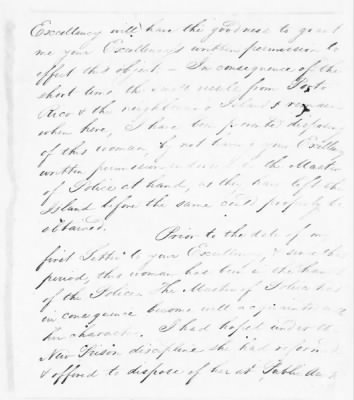 Excellency will have the goodness to grant
me your Excellency's written permission to
effect this object — In consequence of the
short time the small vessels from Porto
Rico & the neighbouring Islands remain
when here, I have been prevented disposing
of this woman, by not having your Excellency's
written permission the Master
of Police at hand, as they have left the
Island before the same could properly be
obtained. Prior to the date of my
first Letter to your Excellency, & since that
period, this woman has been in the hands
of the Police. The Master of Police has
in consequence become well acquainted with
her character. I had hoped under the
New Prison discipline she had reformed
& offered to dispose of her at Public